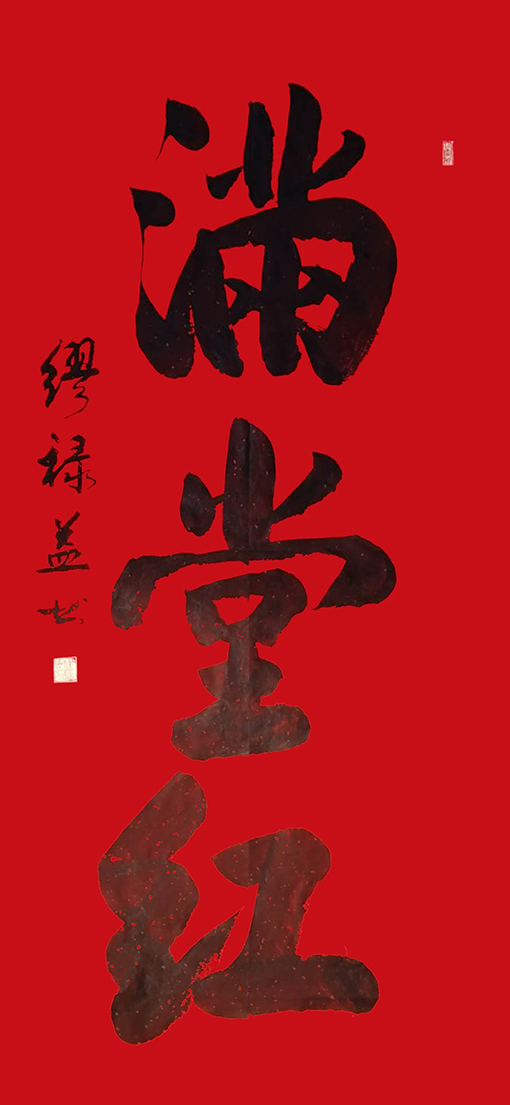 满堂红
缪禄益书